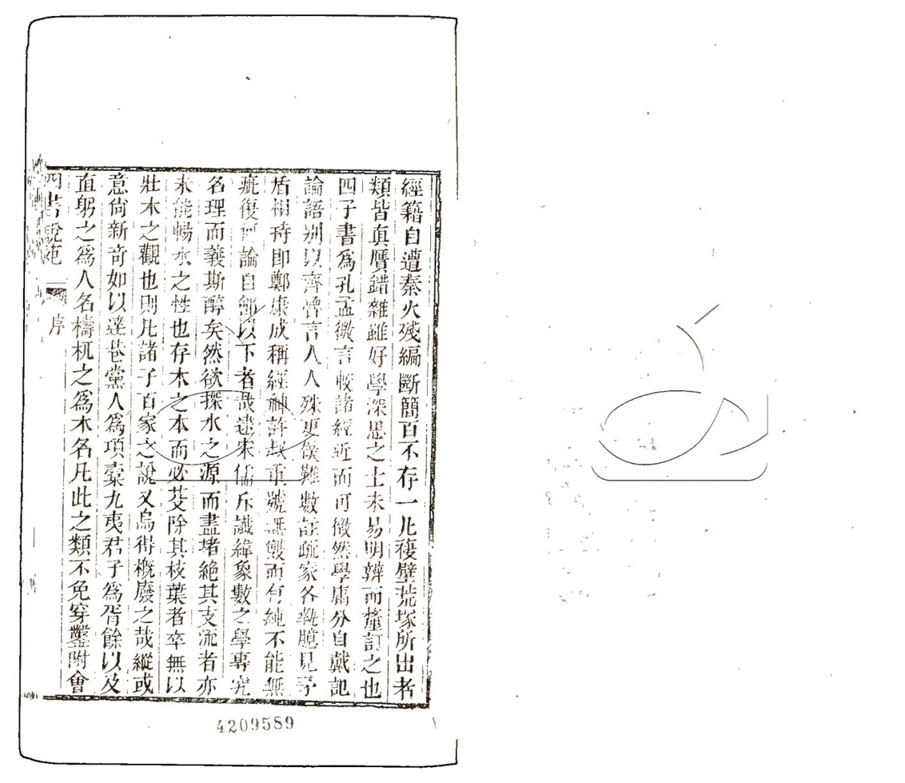 經籍自遭秦火殘編斷簡百不存一凡複壁荒塚所出者
類皆真贋錯雜雖好學深思之士未易明辨而釐訂之也
四子書為孔孟微言較諸經近而可徵然學庸分自戴記
論語別以齊魯言人人殊更僕難數註疏家各執臆見矛
盾相持即鄭康成稱經神許叔重號無雙而有純不能無
疵復何論自鄶以下者哉逮宋儒斥讖緯象數之學專究
名理而義斯醇矣然欲探水之源而盡堵絕其支流者亦
未能暢水之性也存木之本而必芟除其枝葉者卒無以
壯木之觀也則凡諸子百家之說又烏得概廢之哉縱或
意尚新奇如以達巷黨人為項橐九夷君子為胥餘以及
直躬之為人名檮杌之為木名凡此之類不免穿鑿附會
四書說苑 序
4209589